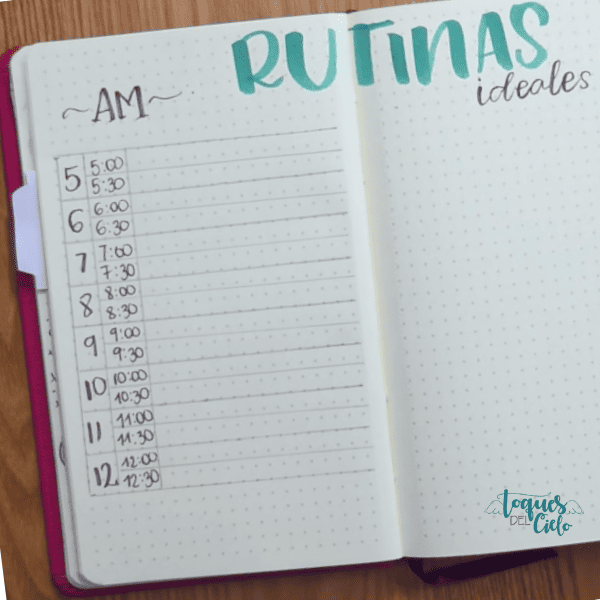 RUTINAS
ideales
~AM~
5 5:00
5:30
6 6:00
6:30
7 7:00
7:30
8 8:00
8:30
9 9:00
9:30
10 10:00
10:30
11 11:00
11:30
12 12:00
12:30
toques
DEL Cielo